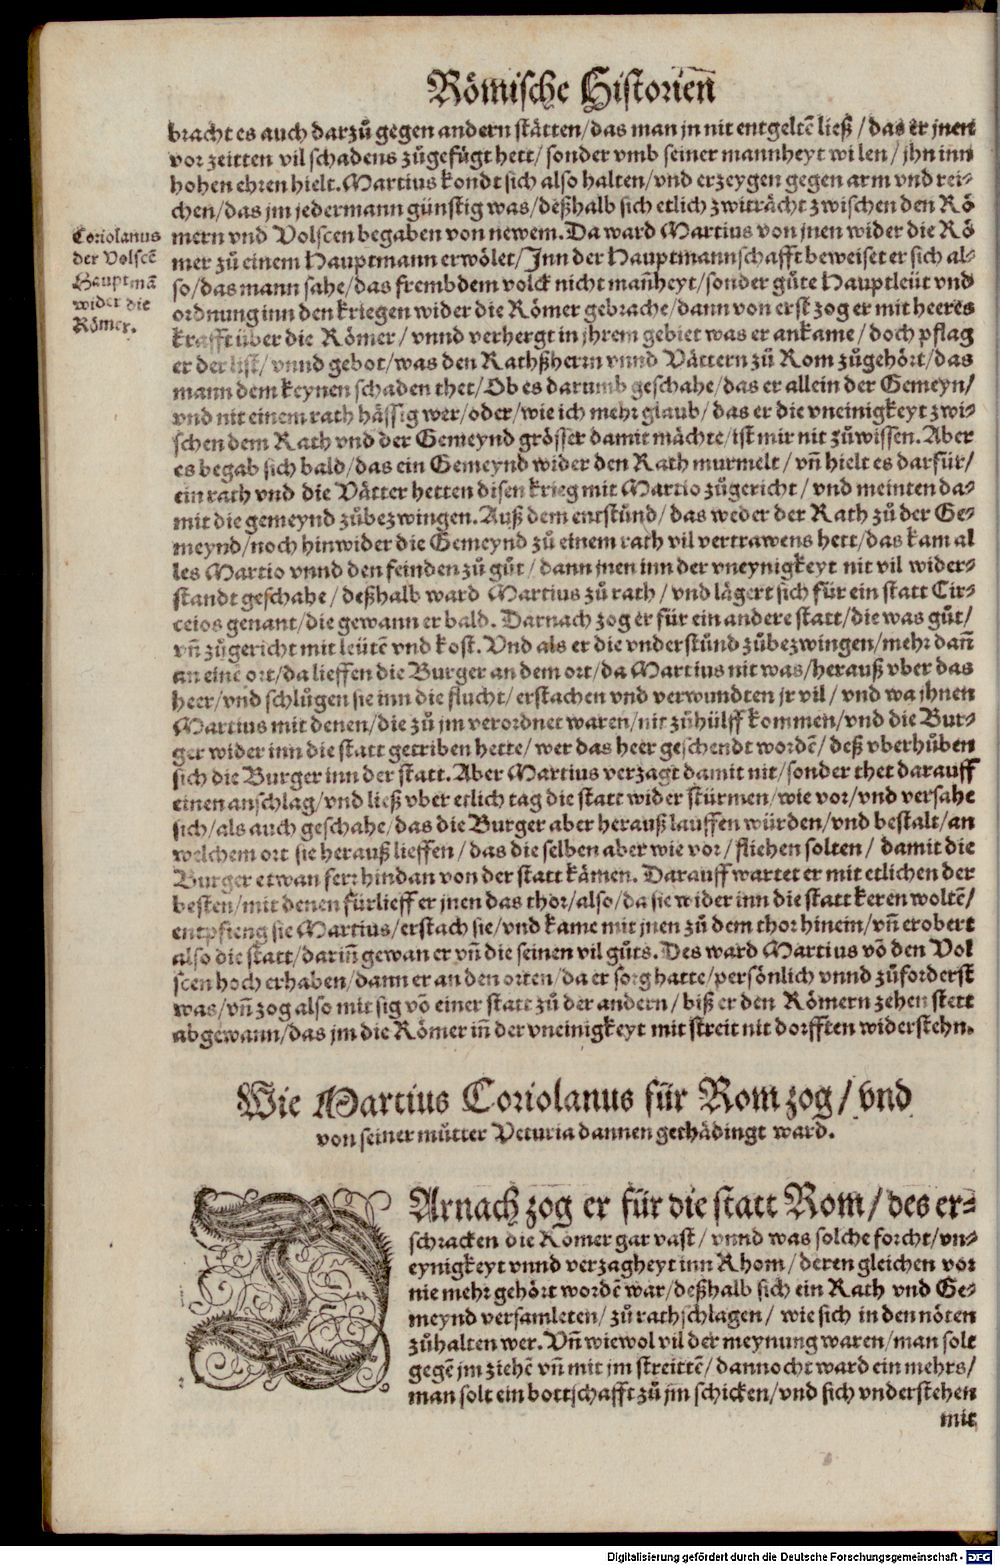 Römische Historien̄
bracht es auch darzů gegen andern stätten/das man jn nit entgeltē ließ/das er jnen
vor zeitten vil schadens zůgefügt hett/sonder vmb seiner mannheyt wi len/jhn inn
hohen ehren hielt. Martius kondt sich also halten/vnd erzeygen gegen arm vnd rei-
chen/das jm jedermann günstig was/deßhalb sich etlich zwiträcht zwischen den Rö
mern vnd Volscen begaben von newem. Da ward Martius von jnen wider die Rö
mer zů einem Hauptmann erwölet/Jnn der Hauptmannschafft beweiset er sich al-
so/das mann sahe/das frembdem volck nicht man̄heyt/sonder gůte Hauptleüt vnd
ordnung inn den kriegen wider die Römer gebrache/dann von erst zog er mit heeres
krafft über die Römer/vnnd verhergt in jhrem gebiet was er ankame/doch pflag
er der list/vnnd gebot/was den Rathßherrn vnnd Vättern zů Rom zůgehört/das
mann dem keynen schaden thet/Ob es darumb geschahe/das er allein der Gemeyn/
vnd nit einem rath hässig wer/oder/wie ich mehr glaub/das er die vneinigkeyt zwi-
schen dem Rath vnd der Gemeynd grösser damit mächte/ist mir nit zůwissen. Aber
es begab sich bald/das ein Gemeynd wider den Rath murmelt/vn̄ hielt es darfür/
ein rath vnd die Vätter hetten disen krieg mit Martio zůgericht/vnd meinten da-
mit die gemeynd zůbezwingen. Auß dem entstůnd/das weder der Rath zů der Ge-
meynd/noch hinwider die Gemeynd zů einem rath vil vertrawens hett/das kam al
les Martio vnnd den feinden zů gůt/dann jnen inn der vneynigkeyt nit vil wider-
standt geschahe/deßhalb ward Martius zů rath/vnd lägert sich für ein statt Cir-
ceios genant/die gewann er bald. Darnach zog er für ein andere statt/die was gůt/
vn̄ zůgericht mit leütē vnd kost. Vnd als er die vnderstůnd zůbezwingen/mehr dan̄
an einē ort/da lieffen die Burger an dem ort/da Martius nit was/herauß vber das
heer/vnd schlůgen sie inn die flucht/erstachen vnd verwundten jr vil/vnd wa jhnen
Martius mit denen/die zů jm verordnet waren/nit zůhülff kommen/vnd die Bur-
ger wider inn die statt getriben hette/wer das heer geschendt wordē/deß vberhůben
sich die Burger inn der statt. Aber Martius verzagt damit nit/sonder thet darauff
einen anschlag/vnd ließ vber etlich tag die statt wider stürmen/wie vor/vnd versahe
sich/als auch geschahe/das die Burger aber herauß lauffen würden/vnd bestalt/an
welchem ort sie herauß lieffen/das die selben aber wie vor/fliehen solten/damit die
Burger etwan ferr hindan von der statt kämen. Darauff wartet er mit etlichen der
besten/mit denen fürlieff er jnen das thor/also/da sie wider inn die statt keren woltē/
entpfieng sie Martius/erstach sie/vnd kame mit jnen zů dem thor hinein/vn̄ erobert
also die statt/darin̄ gewan er vn̄ die seinen vil gůts. Des ward Martius vō den Vol
scen hoch erhaben/dann er an den orten/da er sorg hatte/persönlich vnnd zůforderst
was/vn̄ zog also mit sig vō einer statt zů der andern/biß er den Römern zehen stett
abgewann/das jm die Römer in̄ der vneinigkeyt mit streit nit dorfften widerstehn.
Coriolanus
der Volscē
Hauptmā
wider die
Römer.
Wie Martius Coriolanus für Rom zog/vnd
von seiner můtter Veturia dannen gethädingt ward.
DArnach zog er für die statt Rom/des er-
schracken die Römer gar vast/vnnd was solche forcht/vn-
eynigkeyt vnnd verzagheyt inn Rhom/deren gleichen vor
nie mehr gehört wordē war/deßhalb sich ein Rath vnd Ge-
meynd versamleten/zů rathschlagen/wie sich in den nöten
zůhalten wer. Vn̄ wiewol vil der meynung waren/man solt
gegē jm ziehē vn̄ mit jm streittē/dannocht ward ein mehrs/
man solt ein bottschafft zů jm schicken/vnd sich vnderstehen
mit
Digitalisierung gefördert durch die Deutsche Forschungsgemeinschaft - DFG